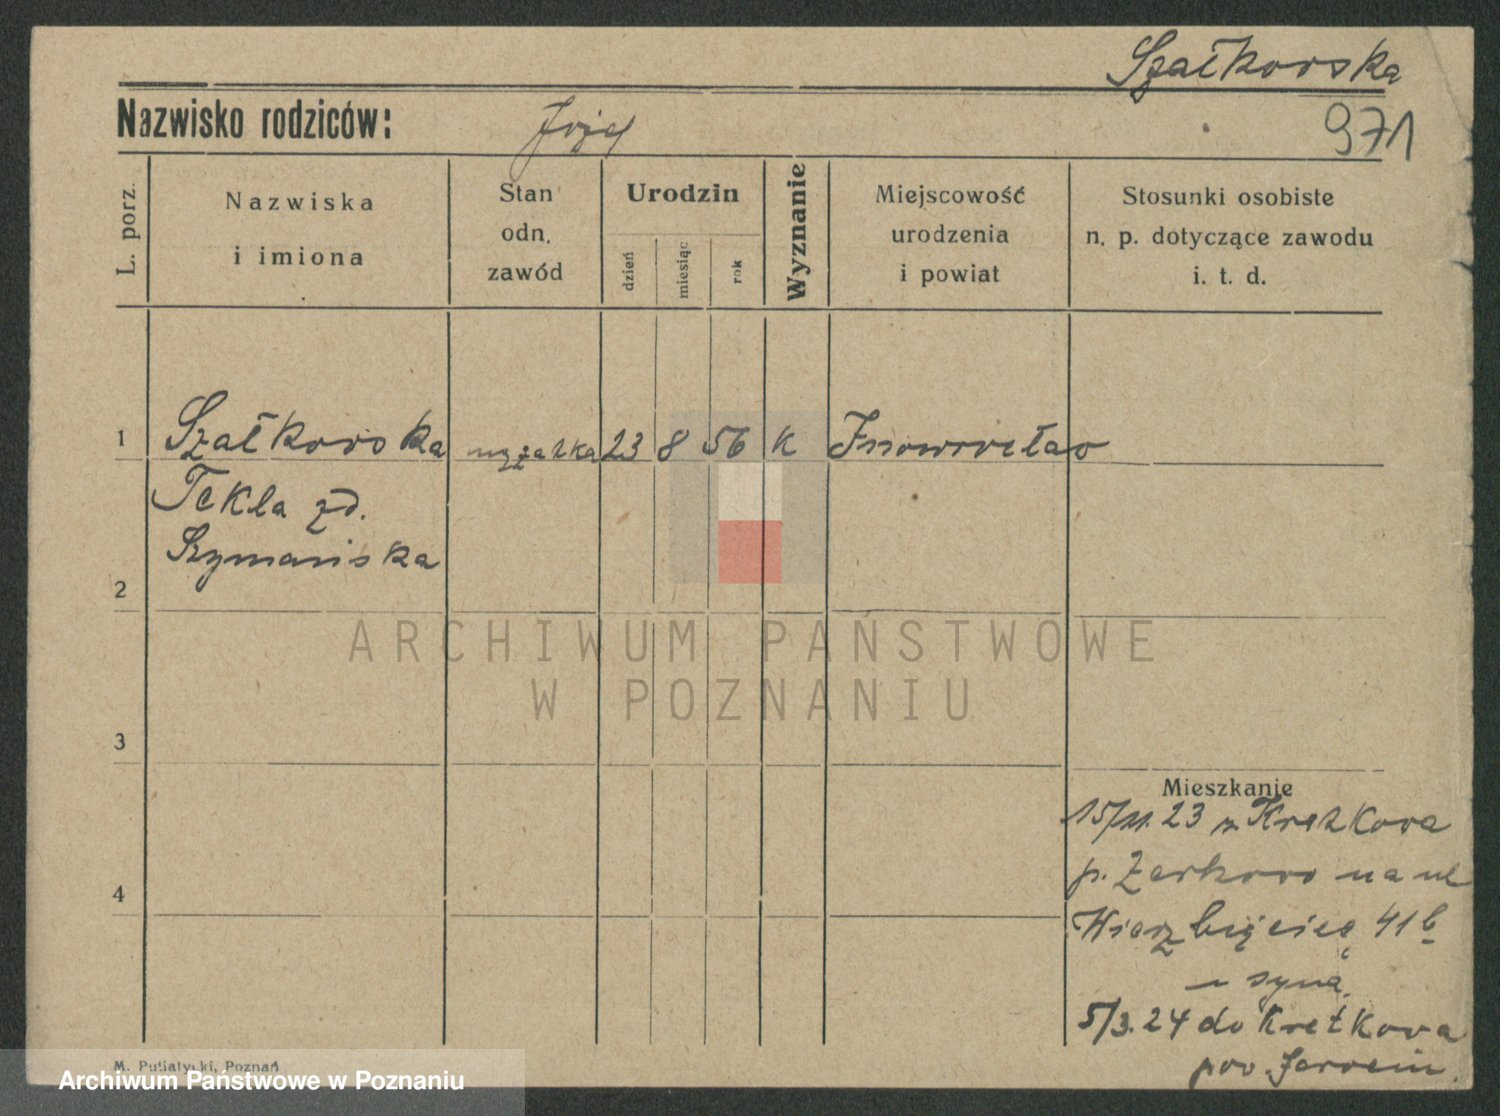 Szałkowska
Nazwisko rodziców: Józef
971
L. porz.
Nazwiska
i imiona
Stan
odn.
zawód
Urodzin
dzień
miesiąc
rok
Wyznanie
Miejscowość
urodzenia
i powiat
Stosunki osobiste
n. p. dotyczące zawodu
i. t. d.
1 Szałkowska mężatka 23 8 56 K Inowrocław
Tekla zd.
Szymańska
2
ARCHIWUM PAŃSTWOWE
W POZNANIU
3
Mieszkanie
15/11. 23 z Kretkowa
p. Żerkowo na ul
4
Wierzbięcice 41b
u syna.
5/3. 24 do Kretkowa
pow. Jarocin.
M. Putiatycki, Poznań
Archiwum Państwowe w Poznaniu